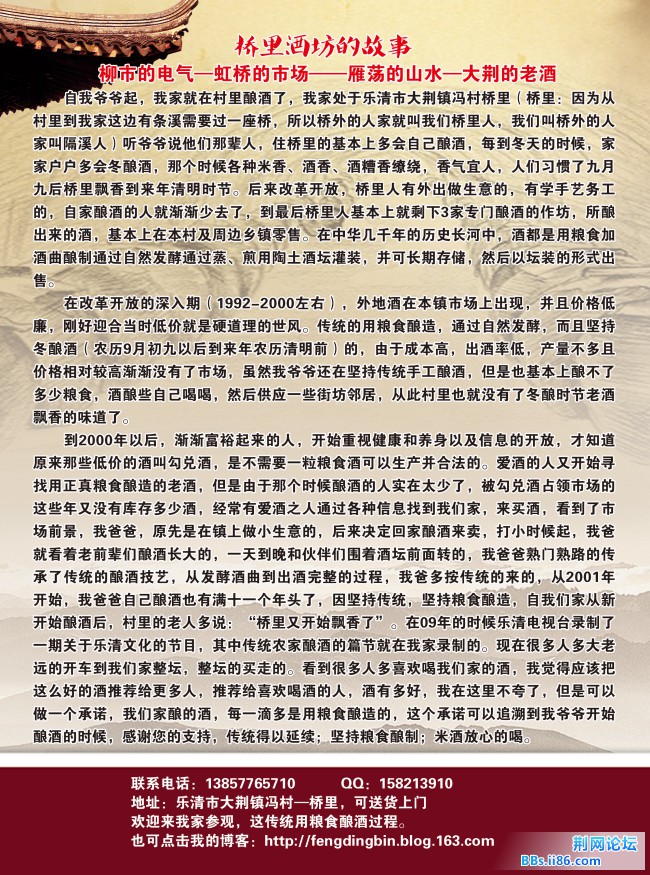 桥里酒坊的故事
柳市的电气—虹桥的市场——雁荡的山水—大荆的老酒
自我爷爷起，我家就在村里酿酒了，我家处于乐清市大荆镇冯村桥里（桥里：因为从
村里到我家这边有条溪需要过一座桥，所以桥外的人家就叫我们桥里人，我们叫桥外的人
家叫隔溪人）听爷爷说他们那辈人，住桥里的基本上多会自己酿酒，每到冬天的时候，家
家户户多会冬酿酒，那个时候各种米香、酒香、酒糟香缭绕，香气宜人，人们习惯了九月
九后桥里飘香到来年清明时节。后来改革开放，桥里人有外出做生意的，有学手艺务工
的，自家酿酒的人就渐渐少去了，到最后桥里人基本上就剩下3家专门酿酒的作坊，所酿
出来的酒，基本上在本村及周边乡镇零售。在中华几千年的历史长河中，酒都是用粮食加
酒曲酿制通过自然发酵通过蒸、煎用陶土酒坛灌装，并可长期存储，然后以坛装的形式出
售。
在改革开放的深入期（1992-2000左右），外地酒在本镇市场上出现，并且价格低
廉，刚好迎合当时低价就是硬道理的世风。传统的用粮食酿造，通过自然发酵，而且坚持
冬酿酒（农历9月初九以后到来年农历清明前）的，由于成本高，出酒率低，产量不多且
价格相对较高渐渐没有了市场，虽然我爷爷还在坚持传统手工酿酒，但是也基本上酿不了
多少粮食，酒酿些自己喝喝，然后供应一些街坊邻居，从此村里也就没有了冬酿时节老酒
飘香的味道了。
到2000年以后，渐渐富裕起来的人，开始重视健康和养身以及信息的开放，才知道
原来那些低价的酒叫勾兑酒，是不需要一粒粮食酒可以生产并合法的。爱酒的人又开始寻
找用正真粮食酿造的老酒，但是由于那个时候酿酒的人实在太少了，被勾兑酒占领市场的
这些年又没有库存多少酒，经常有爱酒之人通过各种信息找到我们家，来买酒，看到了市
场前景，我爸爸，原先是在镇上做小生意的，后来决定回家酿酒来卖，打小时候起，我爸
就看着老前辈们酿酒长大的，一天到晚和伙伴们围着酒坛前面转的，我爸爸熟门熟路的传
承了传统的酿酒技艺，从发酵酒曲到出酒完整的过程，我爸多按传统的来的，从2001年
开始，我爸爸自己酿酒也有满十一个年头了，因坚持传统，坚持粮食酿造，自我们家从新
开始酿酒后，村里的老人多说：“桥里又开始飘香了”。在09年的时候乐清电视台录制了
一期关于乐清文化的节目，其中传统农家酿酒的篇节就在我家录制的。现在很多人多大老
远的开车到我们家整坛，整坛的买走的。看到很多人多喜欢喝我们家的酒，我觉得应该把
这么好的酒推荐给更多人，推荐给喜欢喝酒的人，酒有多好，我在这里不夸了，但是可以
做一个承诺，我们家酿的酒，每一滴多是用粮食酿造的，这个承诺可以追溯到我爷爷开始
酿酒的时候，感谢您的支持，传统得以延续；坚持粮食酿制；米酒放心的喝。
联系电话：13857765710 QQ：158213910
地址：乐清市大荆镇冯村—桥里，可送货上门
欢迎来我家参观，这传统用粮食酿酒过程。
也可点击我的博客：http://fengdingbin.blog.163.com
荆网论坛
BBs.ii86.com